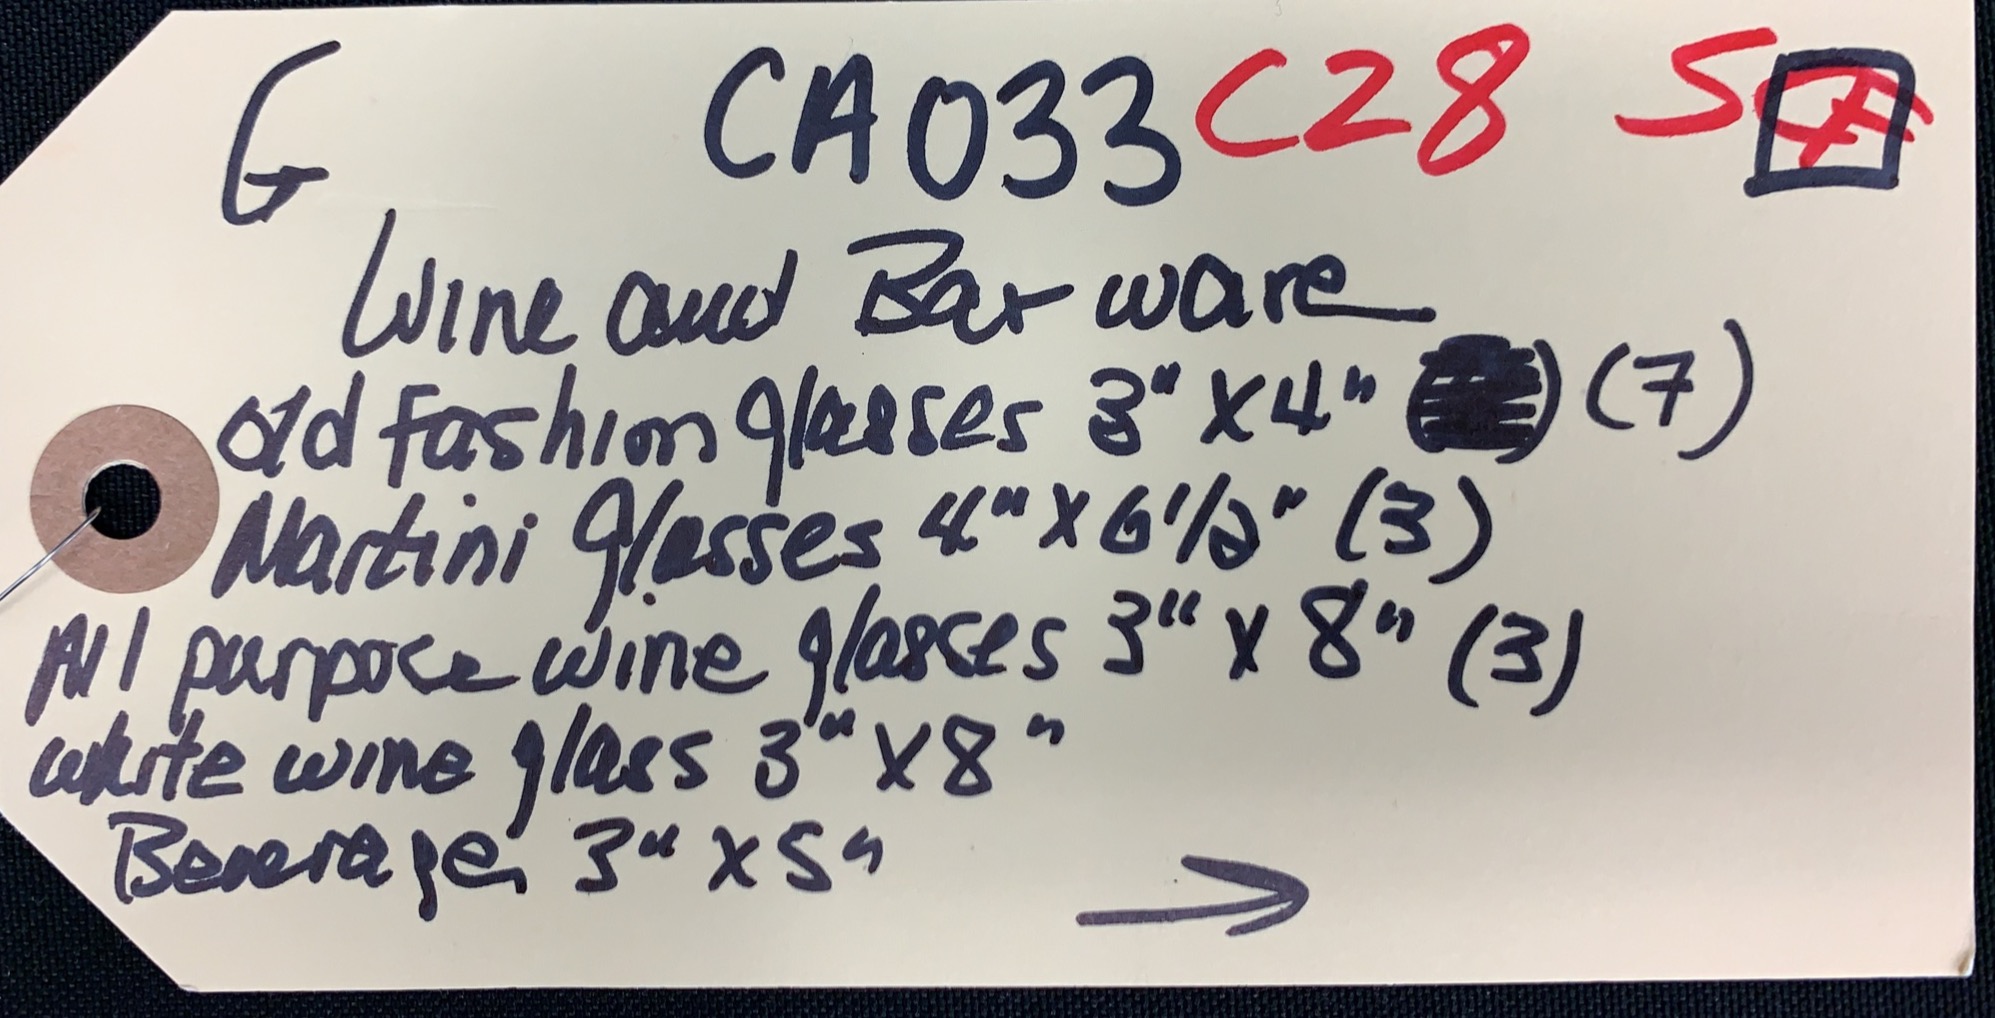 G CA033 C28
Wine and Bar ware
old fashion glasses 3" x 4" (7)
Martini glasses 4" x 6 1/2" (3)
All purpose wine glasses 3" x 8" (3)
white wine glass 3" x 8"
Beverage 3" x 5"